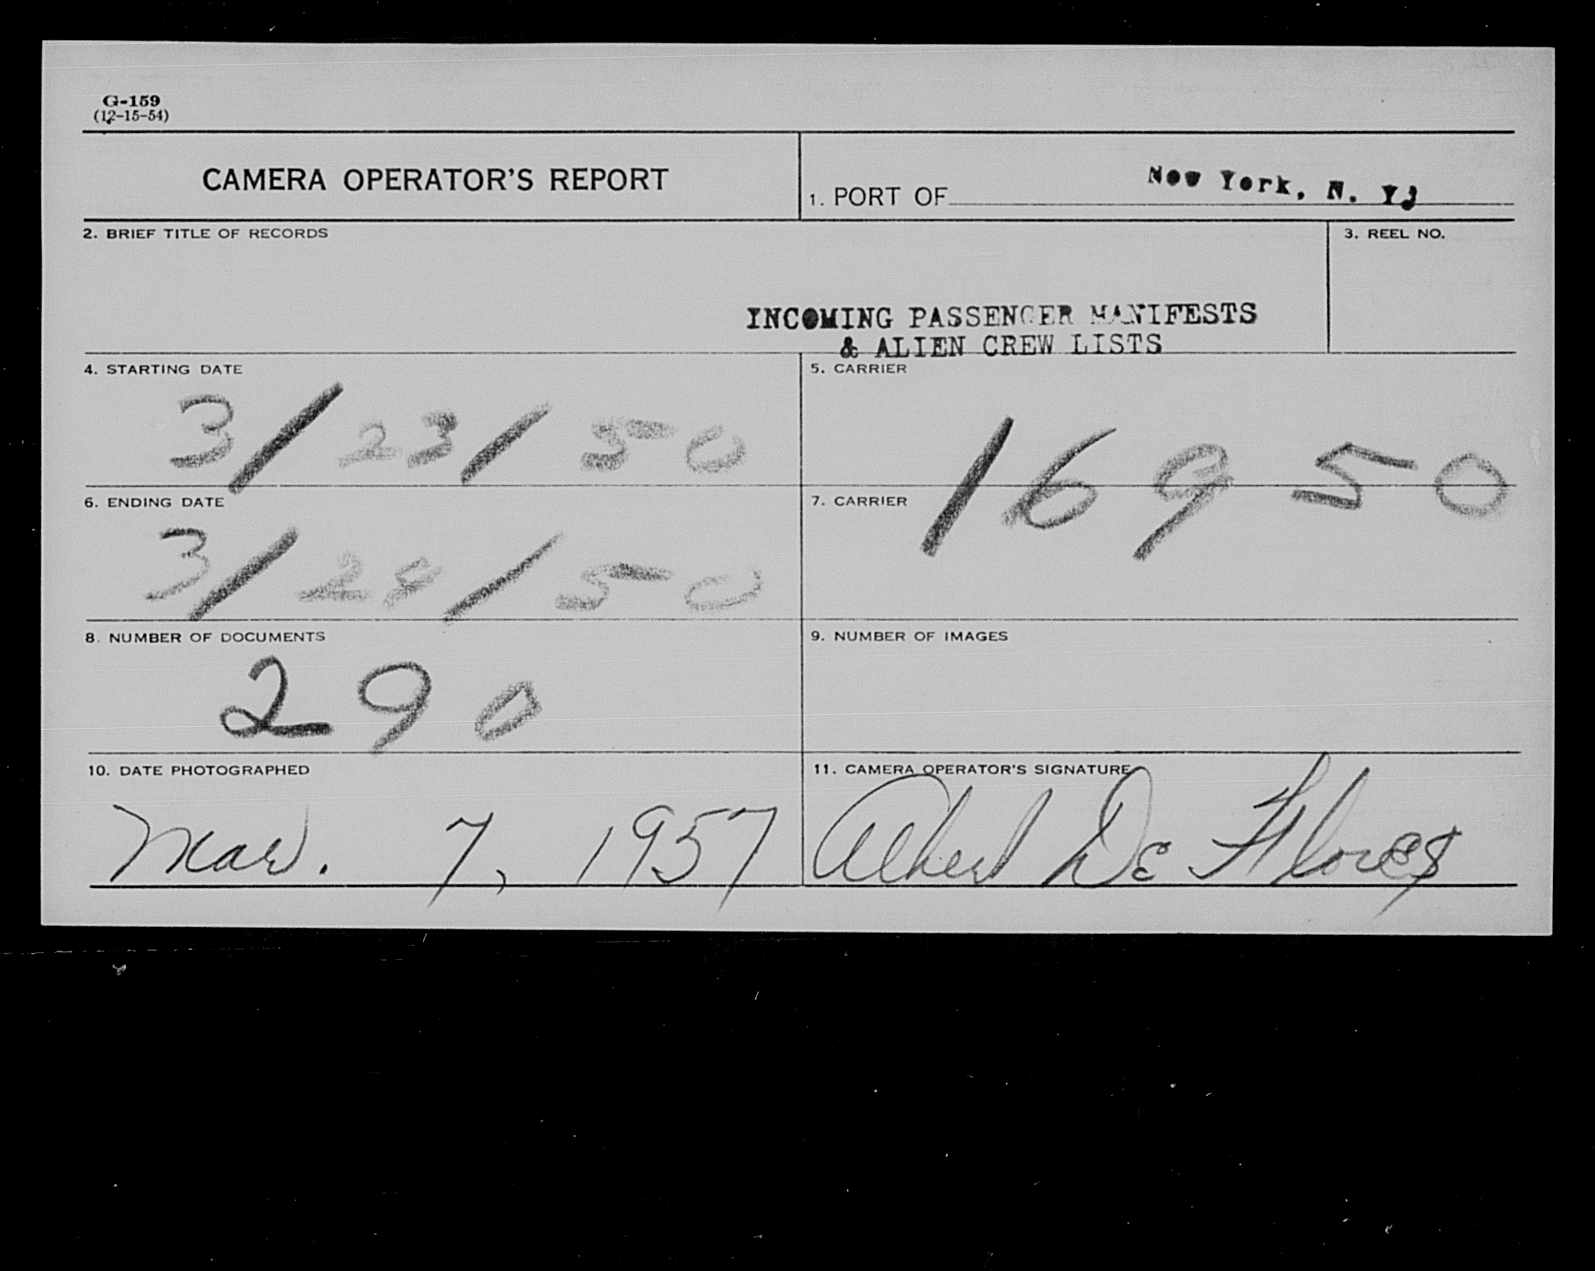 G-159
(12-15-54)
CAMERA OPERATOR'S REPORT
1. PORT OF New York, N. Y.
2. BRIEF TITLE OF RECORDS
3. REEL NO.
INCOMING PASSENGER MANIFESTS
& ALIEN CREW LISTS
4. STARTING DATE
3/23/50
5. CARRIER
16950
6. ENDING DATE
3/24/50
7. CARRIER
8. NUMBER OF DOCUMENTS
290
9. NUMBER OF IMAGES
10. DATE PHOTOGRAPHED
Mar. 7, 1957
11. CAMERA OPERATOR'S SIGNATURE
Albert De Flores